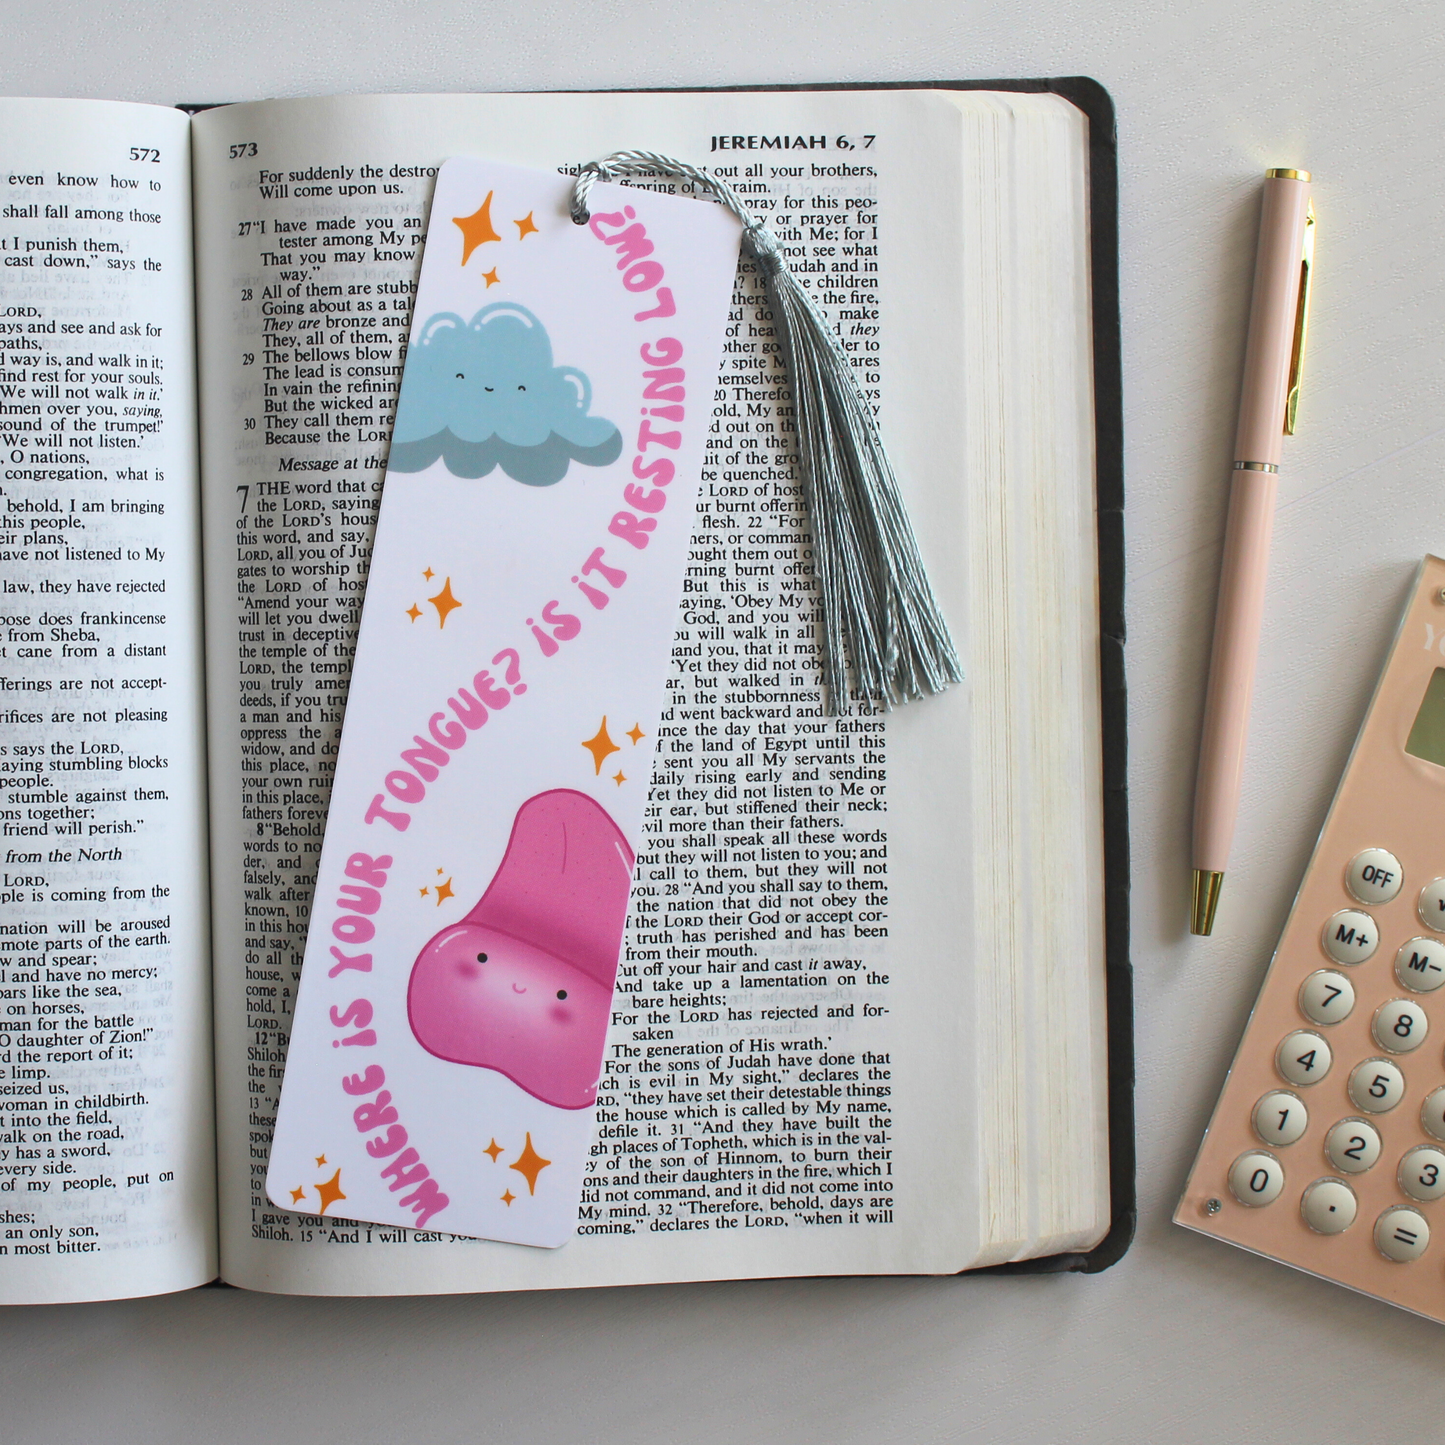 572
even know how to
shall fall among those
t I punish them,
cast down,” says the
LORD,
ays and see and ask for
paths,
d way is, and walk in it;
find rest for your souls.
‘We will not walk in it.’
hmen over you, saying,
sound of the trumpet!’
‘We will not listen.’
, O nations,
congregation, what is
behold, I am bringing
this people,
eir plans,
have not listened to My
law, they have rejected
pose does frankincense
e from Sheba,
et cane from a distant
fferings are not accept-
rifices are not pleasing
s says the LORD,
laying stumbling blocks
people.
stumble against them,
ons together;
friend will perish.”
from the North
LORD,
ple is coming from the
nation will be aroused
mote parts of the earth.
w and spear;
l and have no mercy;
oars like the sea,
on horses,
man for the battle
O daughter of Zion!”
rd the report of it;
e limp.
seized us,
woman in childbirth.
t into the field,
walk on the road,
y has a sword,
every side.
of my people, put on
shes;
an only son,
n most bitter.
573
JEREMIAH 6, 7
For suddenly the destro
Will come upon us.
27 “I have made you an
tester among My pe
That you may know
way.”
28 All of them are stubb
Going about as a tale
They are bronze and
They, all of them, a
29 The bellows blow fi
The lead is consum
In vain the refining
But the wicked are
30 They call them re
Because the LORD
Message at the
7 THE word that ca
the LORD, saying
of the LORD’S hous
this word, and say,
LORD, all you of Jud
gates to worship th
the LORD of host
“Amend your way
will let you dwell
trust in deceptive
the temple of the
LORD, the templ
you truly amen
deeds, if you tru
a man and his
oppress the a
widow, and do
this place, no
your own ruin
in this place, i
fathers foreve
8 “Behold,
words to no
der, and c
falsely, and
walk after
known, 10
in this hou
and say, ‘
do all th
house, w
come a
hold, I,
LORD.
12 “Bu
Shiloh
the firs
the
13 “A
these
spok
but
you
to
in w
I gave you and
Shiloh. 15 “And I will cast you
out all your brothers,
offspring of Ephraim.
pray for this peo-
ry or prayer for
with Me; for I
not see what
ies Judah and in
? 18 The children
thers the fire,
ad do make
of heav d they
other go der to
y spite M ares
hemselves to
20 Therefo ays
old, My an y
d out on th
and on the
uit of the gro
be quenched.’
LORD of host
ur burnt offerin
flesh. 22 “For
hers, or comman
ought them out o
rning burnt offer
But this is what
saying, ‘Obey My vo
God, and you will
ou will walk in all
and you, that it may
‘Yet they did not obe
ar, but walked in th
in the stubbornness
d went backward and not for-
ince the day that your fathers
f the land of Egypt until this
sent you all My servants the
daily rising early and sending
Yet they did not listen to Me or
eir ear, but stiffened their neck;
evil more than their fathers.
you shall speak all these words
but they will not listen to you; and
ll call to them, but they will not
you. 28 “And you shall say to them,
the nation that did not obey the
f the LORD their God or accept cor-
; truth has perished and has been
from their mouth.
Cut off your hair and cast it away,
And take up a lamentation on the
bare heights;
For the LORD has rejected and for-
saken
The generation of His wrath.’
For the sons of Judah have done that
ich is evil in My sight,” declares the
RD, “they have set their detestable things
the house which is called by My name,
defile it. 31 “And they have built the
gh places of Topheth, which is in the val-
ey of the son of Hinnom, to burn their
ons and their daughters in the fire, which I
did not command, and it did not come into
My mind. 32 “Therefore, behold, days are
coming,” declares the LORD, “when it will
WHERE IS YOUR TONGUE? IS IT RESTING LOW?
OFF
M+ M−
7 8
4 5
1 2 3
0 . =